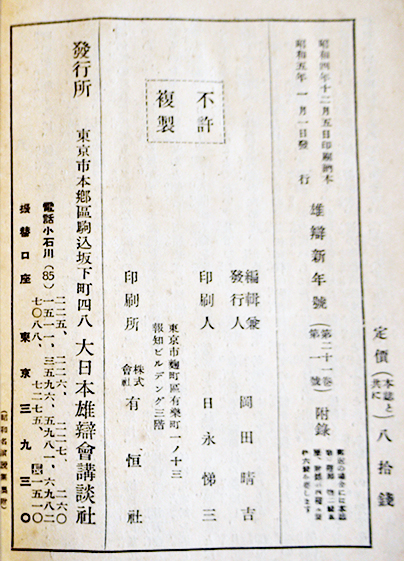 定價(本誌と共に)八拾錢
昭和四年十二月五日印刷納本
昭和五年一月一日發行
雄辯新年號(第二十一卷第一號)附錄
編輯兼發行人 岡田晴吉
印刷人 日永悌三
東京市麴町區有樂町一ノ十三
報知ビルデング三階
印刷所 株式會社 有恒社
不許複製
發行所 東京市本鄕區駒込坂下町四八 大日本雄辯會講談社
電話小石川(85)
二二五、二二六、二二七、二六〇
一五一一、三五九六、五九八一、六九八二
七〇八八、七二七五、一五一〇
振替口座東京三九三〇